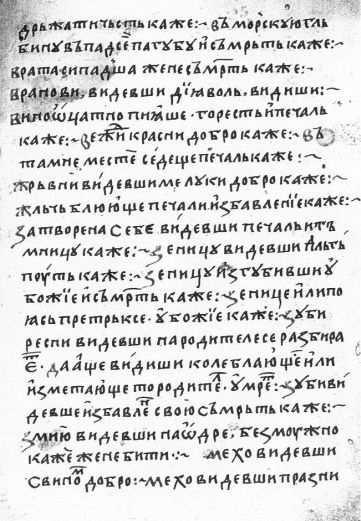 дрьжатичьстькаже:~ въморскꙋютль
бинꙋвъпадсе пагꙋбꙋисъмрьть каже:
врата падша жене съмрть каже:
врановивидевши дїꙗволь, видиши:
виноѡчатно пиѥше · горесть ипечаль
каже:~ вежи красни добро каже:~ въ
тамне месте седеще печаль каже:~
жрьвниви девшиме лꙋки добро каже:~
жльчь блююще печали избавленїе каже:~
затворена себе видевши печаль итъ
мницꙋ каже:~ зеницꙋ видевши
пꙋть каже:~ зеницꙋ изгꙋбивши ꙋ
божїе исъмрть каже:~ зенице или по
ꙗсь претрьксе · ꙋбожїе каже:~ зꙋби
ресни видевши народителесе разбира
дааще видиши колеблающеили
изметающе тородите · ꙋмре:~ зꙋбиви
девшеизбавле своюсъмрьть каже:~
змию видевши наѡдре, безмоужно
каже жене бити:~ мехо видевши
свино добро:~ мехо видевши празни